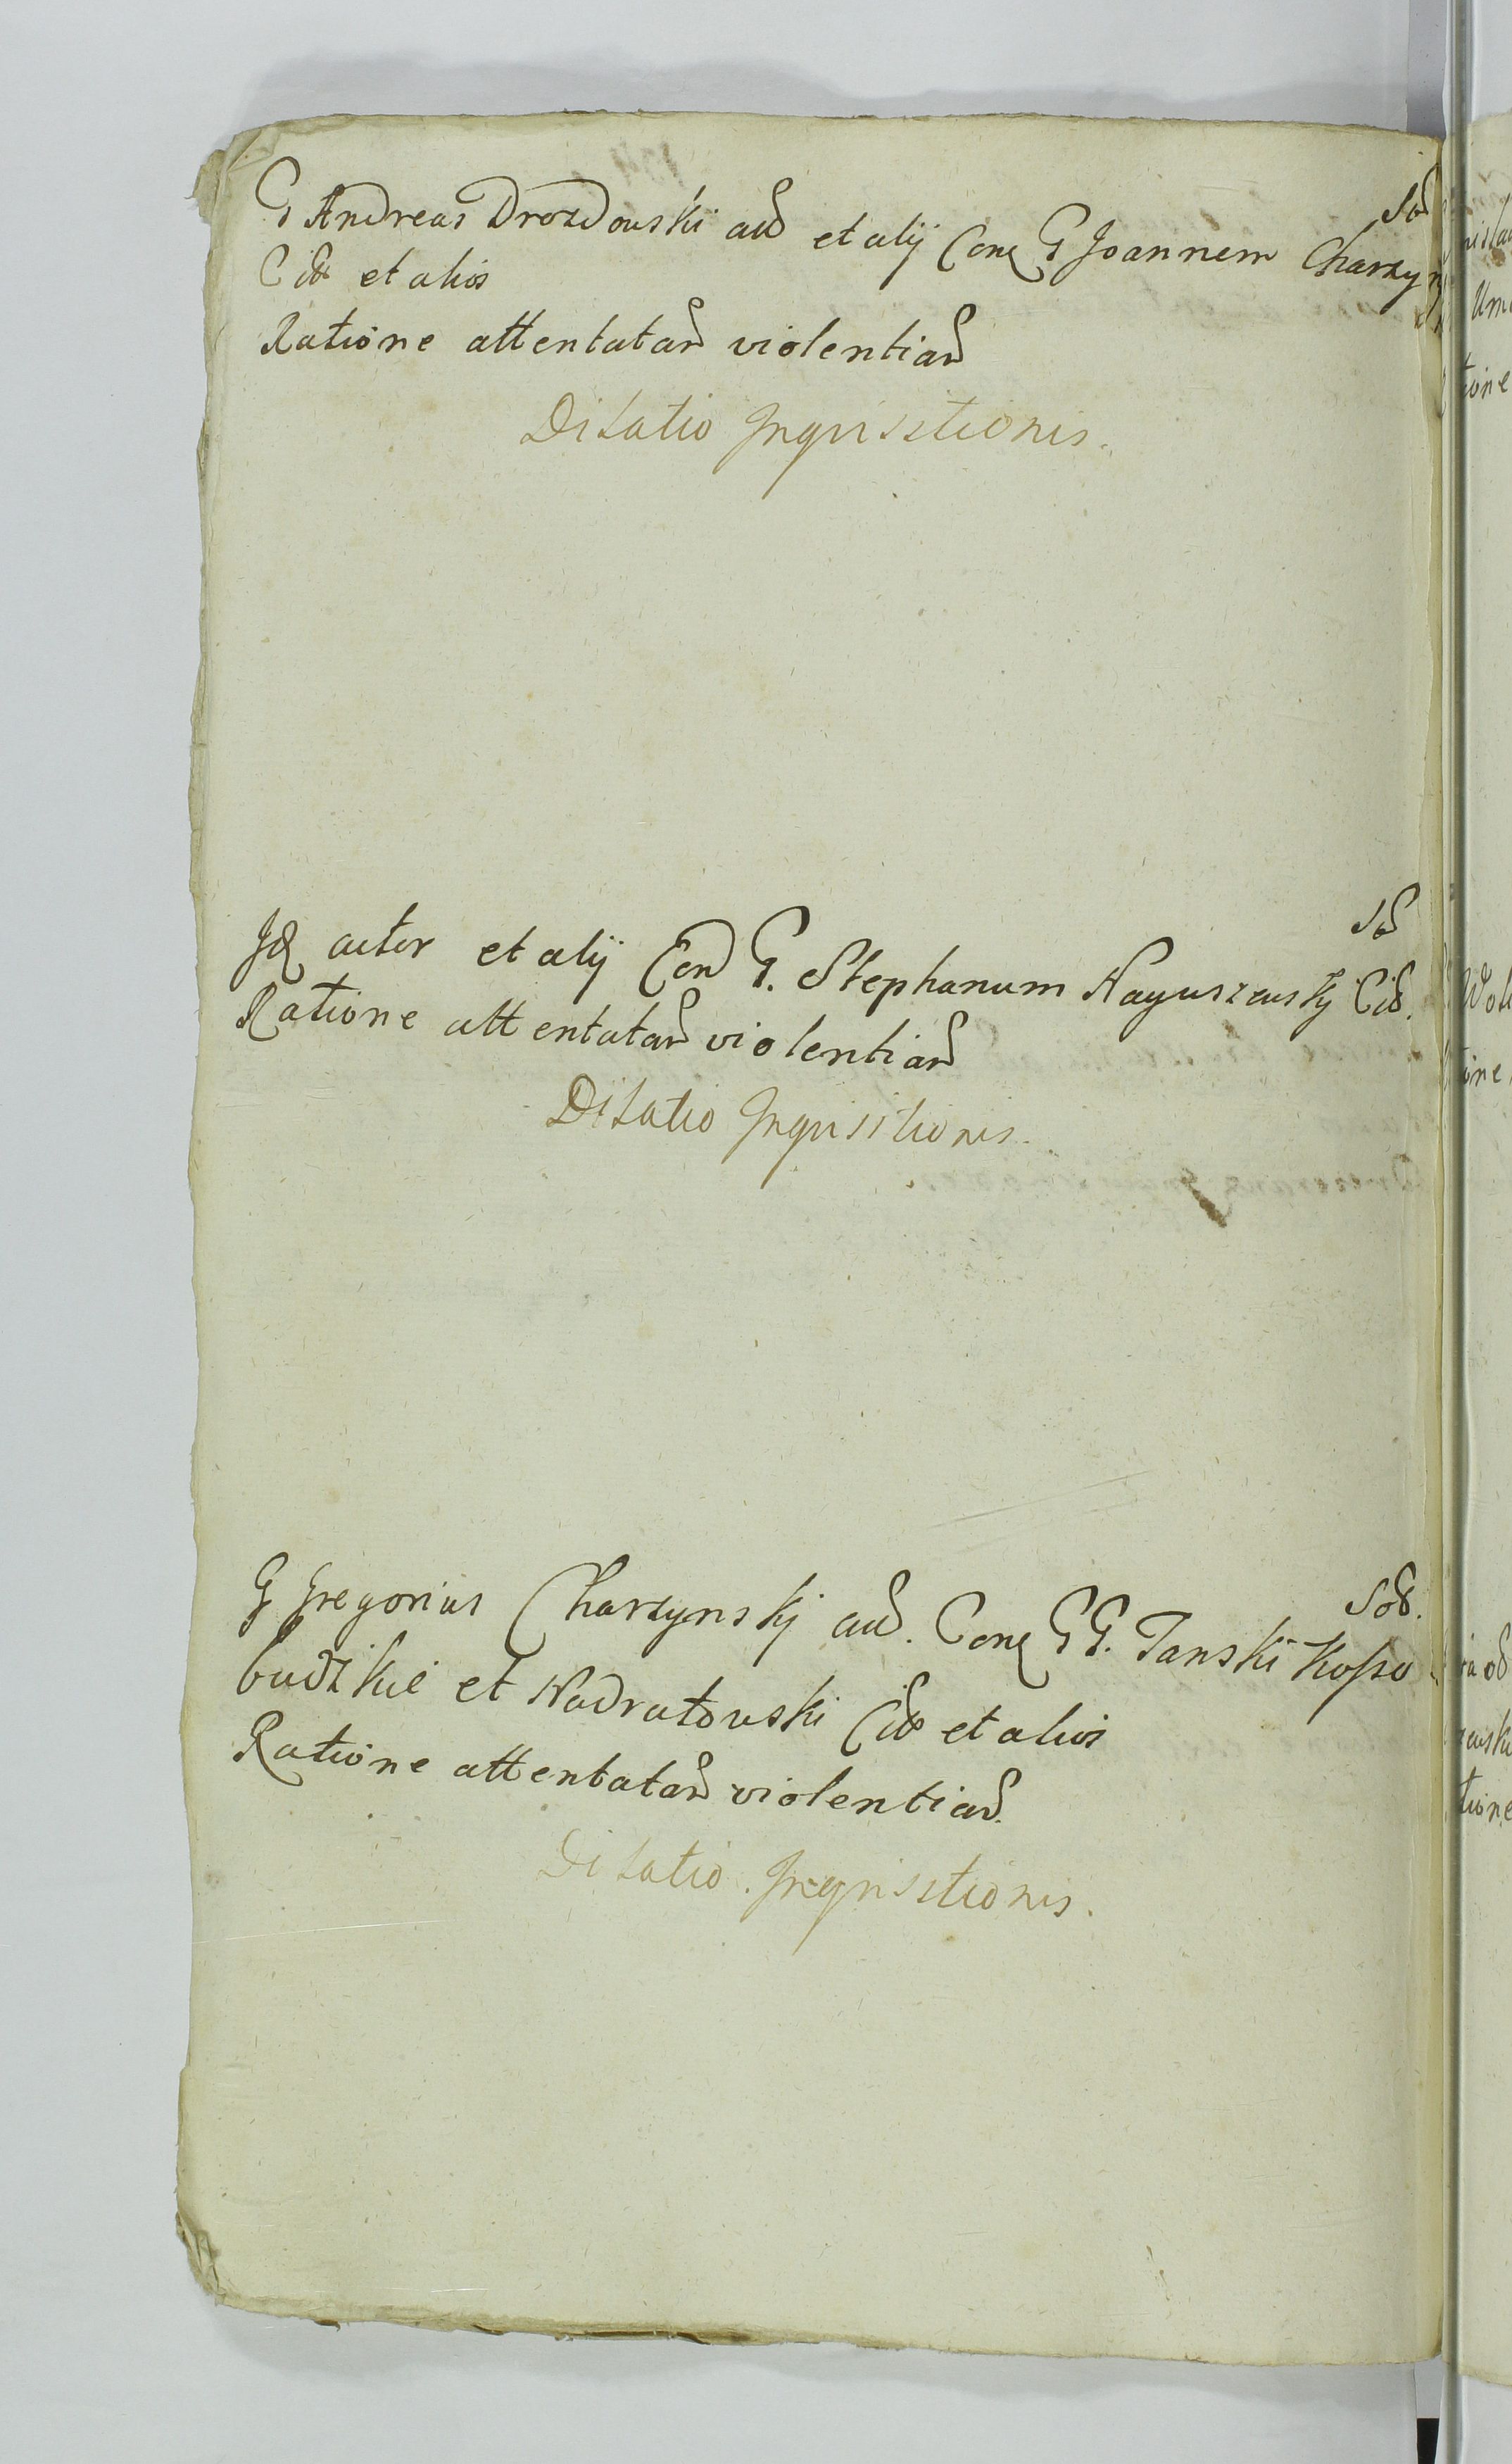 Sod
G Andreas Drozdouski act et alij Conq G Joannem Charzyn
Citt et alios
Ratione attentatar violentiar
Dilatio Inquisitionis.
Sod
Jdq actor et alij Con G. Stephanum Naguszewskj Cit.
Ratione attentatar violentiar
Dilatio Inquisitionis.
Sod.
G Gregorius Charzynskj act. Conq GG. Tanski Kosso
budzkie et Nadratouski Citt et alios
Ratione attentatar violentiar.
Dilatio Inquisitionis.